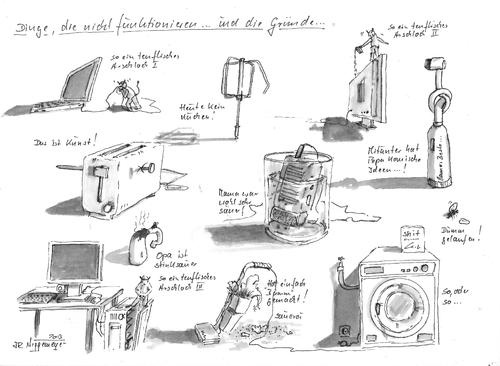 Dinge, die nicht funktionieren... und die Gründe...
so ein teuflisches
Arschloch I
Heute kein
Kuchen!
so ein teuflisches
Arschloch II
Das ist Kunst!
Mama war
wohl sehr
sauer!
Mitunter hat
Papa komische
Ideen...!
Opa ist
stinksauer
so ein teuflisches
Arschloch III
Hat einfach
Bumm
gemacht!
Sauerei
shit
Dumm
gelaufen!
So, oder
so...
2013